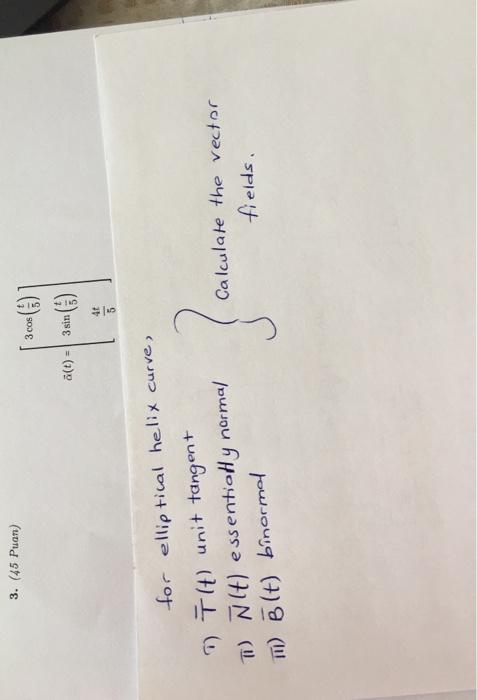 3. (45 Puan)
ᾱ(t) = [ 3 cos(t/5)
3 sin(t/5)
4t/5 ]
for elliptical helix curve,
i) T̄(t) unit tangent
ii) N̄(t) essentially normal
iii) B̄(t) binormal
} Calculate the vector
fields.